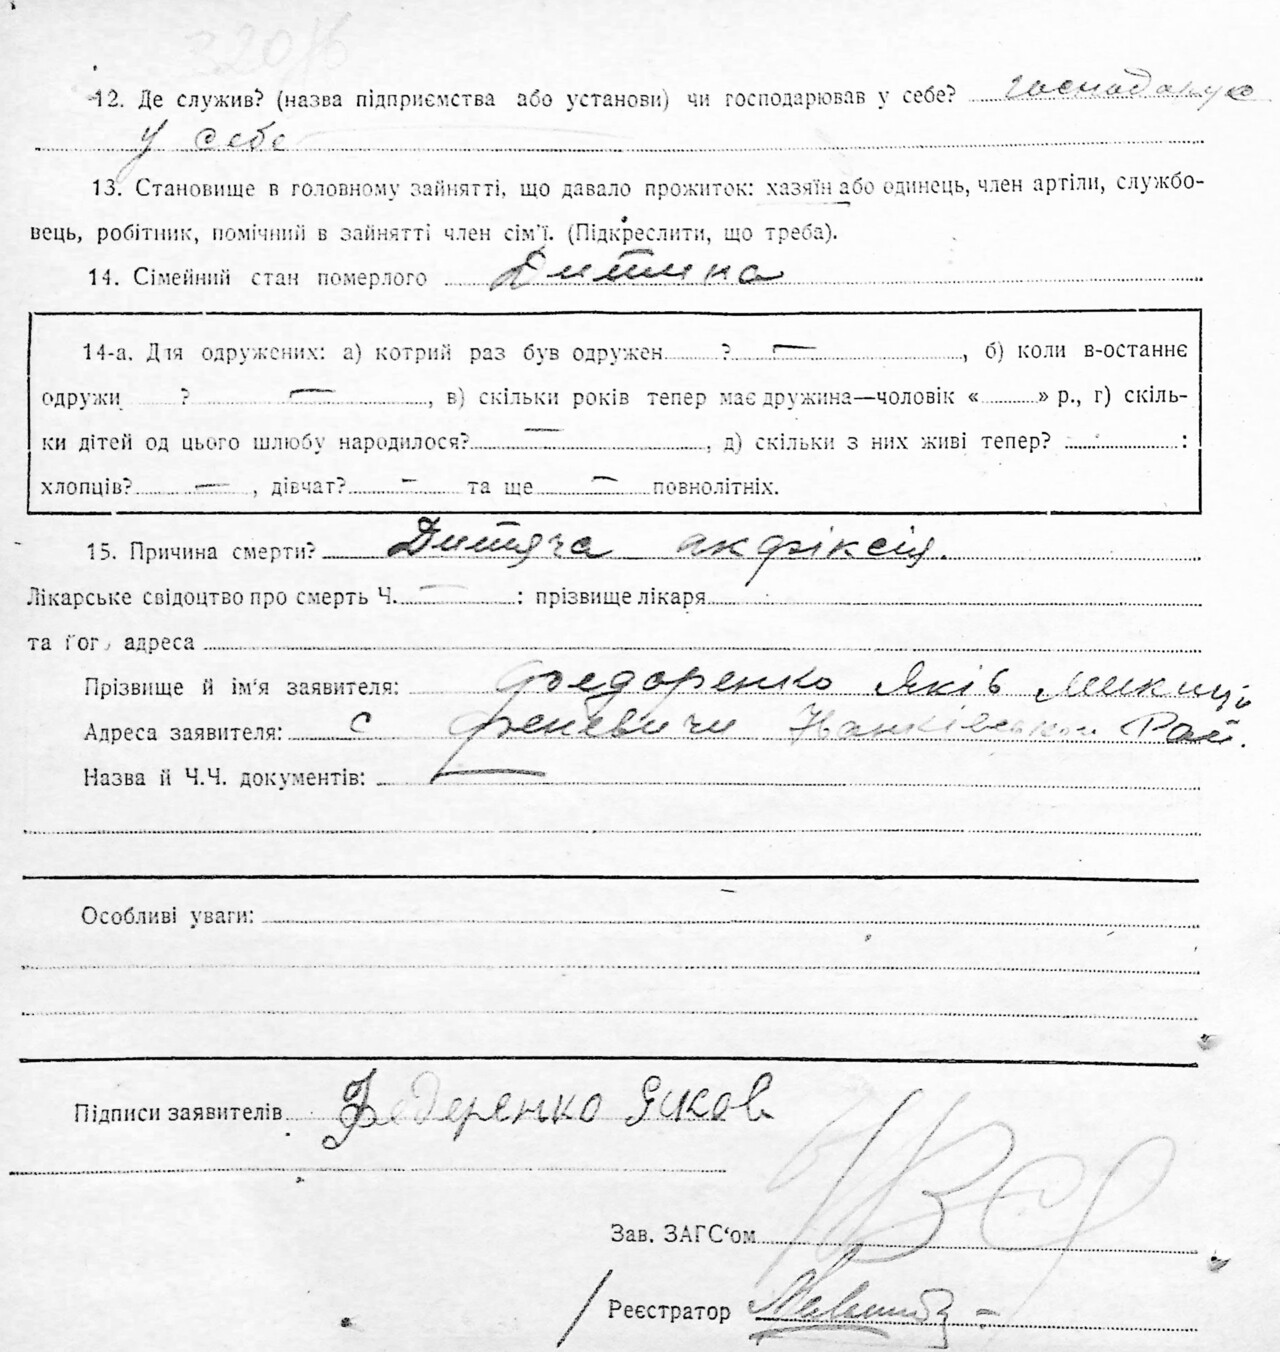 12. Де служив? (назва підприємства або установи) чи господарював у себе? господарує
у себе
13. Становище в головному зайнятті, що давало прожиток: хазяїн або одинець, член артіли, службо-
вець, робітник, помічний в зайнятті член сім'ї. (Підкреслити, що треба).
14. Сімейний стан померлого Дитина
14-а. Для одружених: а) котрий раз був одружен ? —, б) коли в-останнє
одружи ? —, в) скільки років тепер має дружина—чоловік « » р., г) скіль-
ки дітей од цього шлюбу народилося? —, д) скільки з них живі тепер? :
хлопців? —, дівчат? — та ще — повнолітніх.
15. Причина смерти? Дитяча акфіксія.
Лікарське свідоцтво про смерть Ч. — : прізвище лікаря
та його адреса
Прізвище й ім'я заявителя: Федоренко Яків
Адреса заявителя: с Феневичи Рай.
Назва й Ч.Ч. документів: —
Особливі уваги:
Підписи заявителів Федеренко Яков
Зав. ЗАГС'ом
Реєстратор